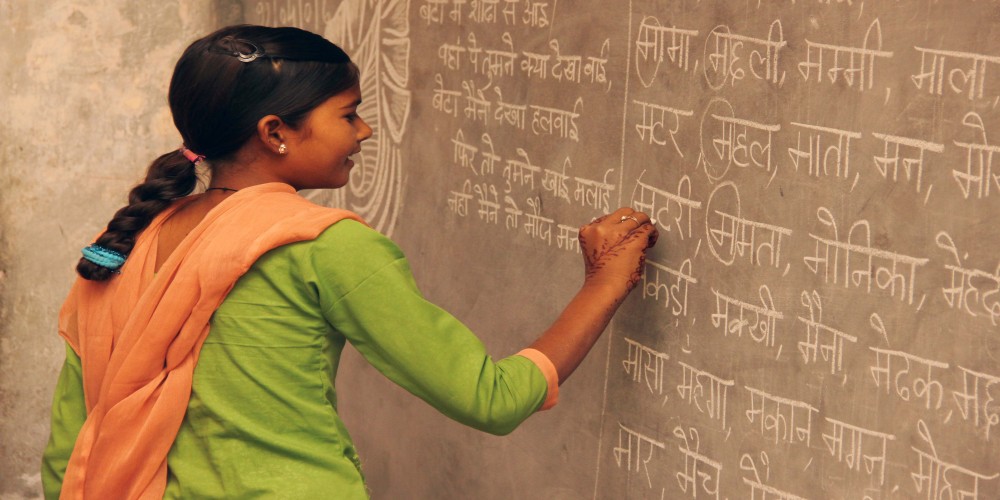 बेटा मैं शादी से आई
वहां पै तुमने क्या देखा बाई,
बेटा मैंने देखा हलवाई
फिर तो तुमने खाई मलाई
नही मैंने तो मौज
मामा, मछली, मम्मी, माला
मटर, महल, माता, मन,
मटरी, ममता, मोनिका,
मक्खी, मैना, मेढक
मासा, महंगा, मकान, मगन,
मार, मैच,